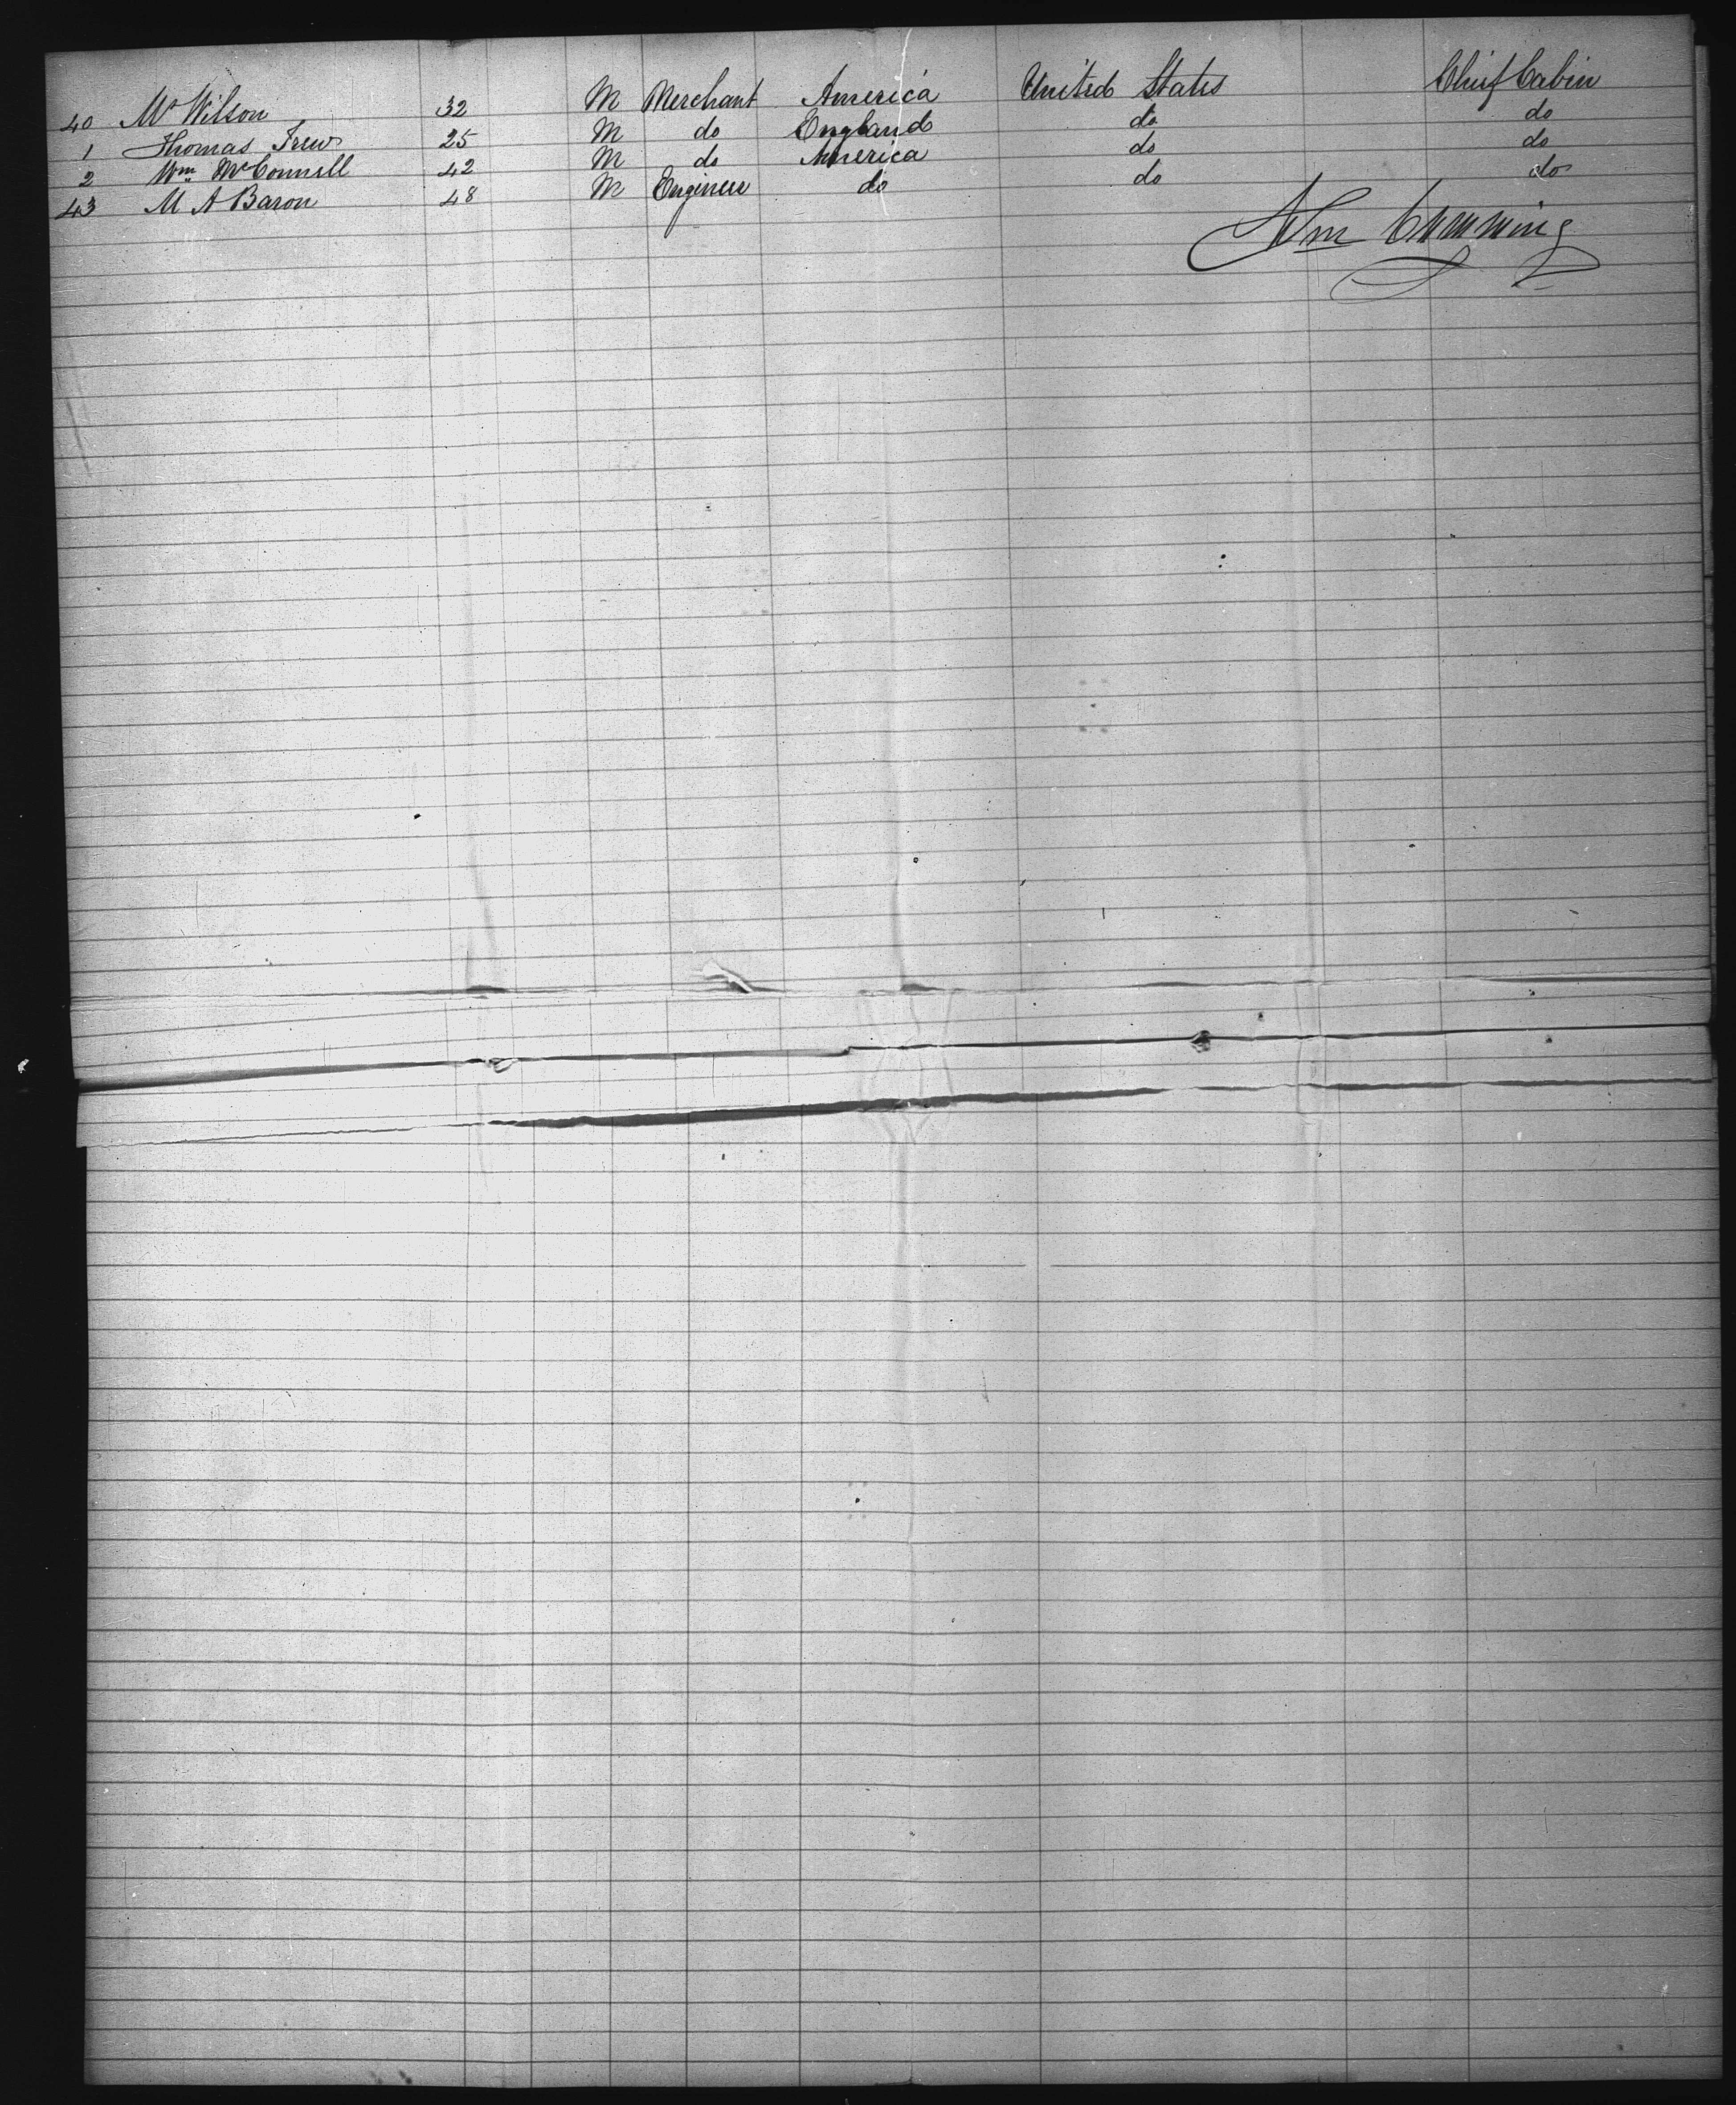 40 Mr Wilson 32 M Merchant America United States Chief Cabin
1 Thomas Frew 25 M do England do do
2 Wm McConnell 42 M do America do do
43 M A Baron 48 M Engineer do do do
Wm Cumming